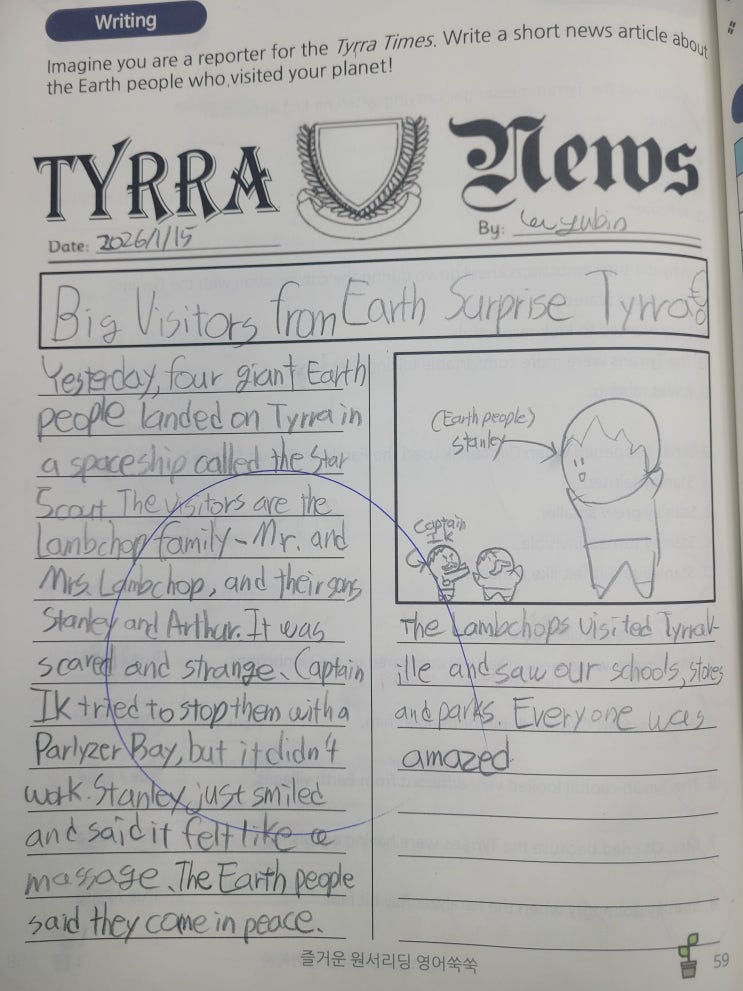 Writing
Imagine you are a reporter for the Tyrra Times. Write a short news article about
the Earth people who visited your planet!
TYRRA News
Date: 2026/1/15
By: Lee yubin
Big Visitors from Earth Surprise Tyrra
Yesterday, four giant Earth
people landed on Tyrra in
a spaceship called the Star
Scout. The visitors are the
Lambchop family - Mr. and
Mrs. Lambchop, and their sons
Stanley and Arthur. It was
scared and strange. Captain
Ik tried to stop them with a
Parlyzer Bay, but it didn't
work. Stanley just smiled
and said it felt like a
massage. The Earth people
said they come in peace.
(Earth people)
Stanley
Captain
Ik
The Lambchops visited Tyrrav-
ille and saw our schools, stores
and parks. Everyone was
amazed.
즐거운 원서리딩 영어쑥쑥
59